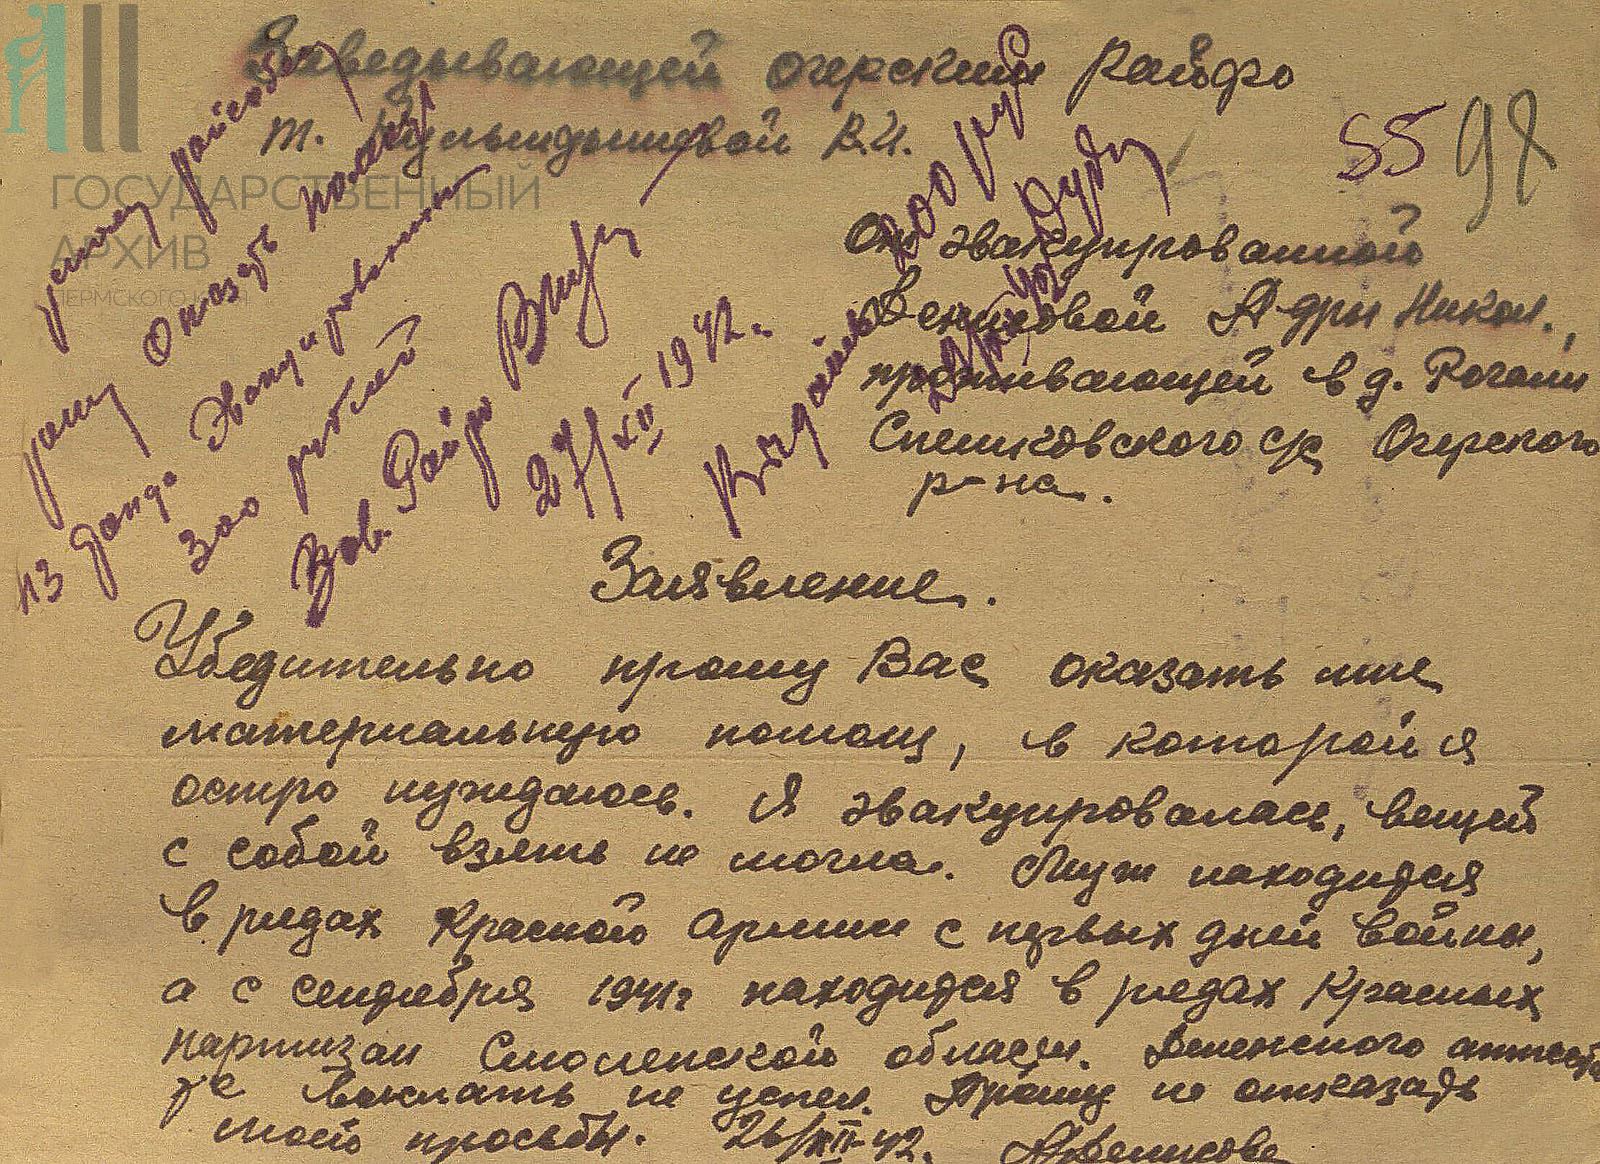 Заведывающей Очерским Райфо
т. Кулындышевой В.И.
55 98
От эвакуированной
Денисовой А-дры Никол.,
проживающей в д. Рогали
Спешковского с/с Очерского
р-на.
ГОСУДАРСТВЕННЫЙ
АРХИВ
ПЕРМСКОГО КРАЯ
Оказать помощь
из фонда эвакуированных
300 рублей
Зав. Райфо
27/XII 1942.
Выдать 200 руб
Заявление.
Убедительно прошу Вас оказать мне
материальную помощ, в которой я
остро нуждаюсь. Я эвакуировалась, вещей
с собой взять не могла. Муж находится
в рядах Красной Армии с первых дней войны,
а с сентября 1941г находится в рядах Красных
партизан Смоленской области. Денежного аттеста
та выслать не успел. Прошу не отказать
моей просьбы. 26/XII-42. АДенисова